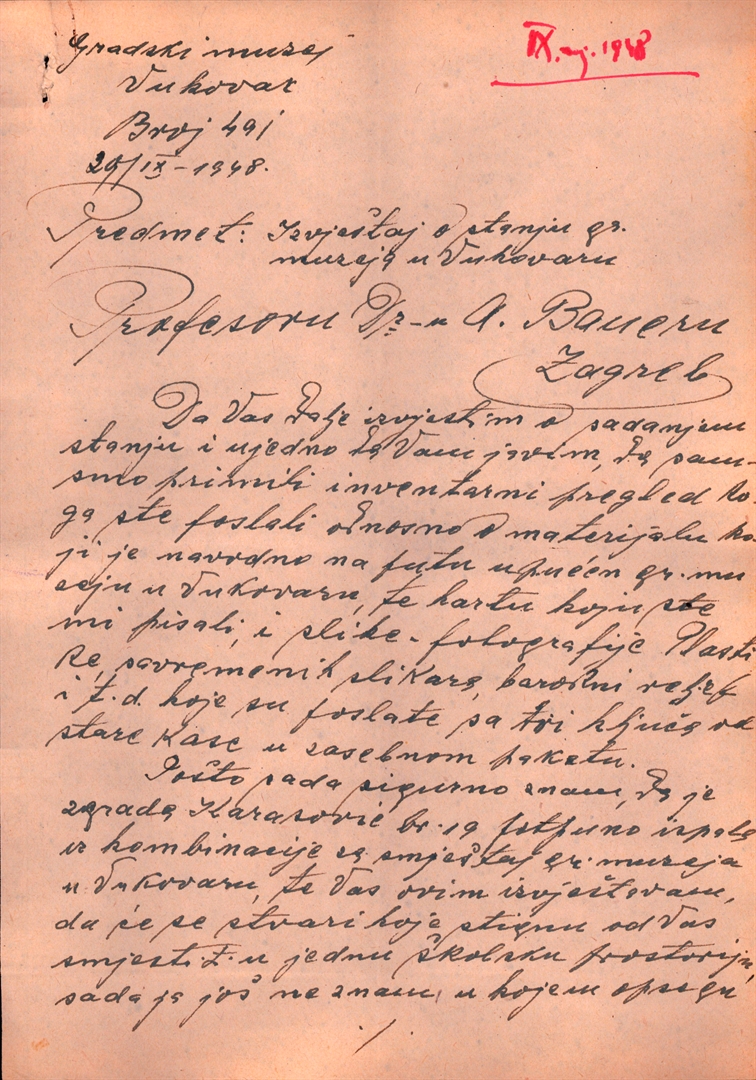 Gradski muzej
IX. mj. 1948
Vukovar
Broj 491
29/IX - 1948.
Predmet: Izvještaj o stanju gr.
muzeja u Vukovaru
Profesoru Dr-u A. Baueru
Zagreb
Da Vas dalje izvjestim o sadanjem
stanju i ujedno da Vam javim, da sam-
smo primili inventarni pregled ko-
ga ste poslali odnosno o materijalu ko-
ji je navodno na putu upućen gr. mu
zeju u Vukovaru, te kartu koju ste
mi pisali, i slike - fotografije Plasti
ke, savremenih slikara, barokni reljef
i t. d. koje su poslate sa tri ključa od
stare kase u zasebnom paketu.
Pošto sada sigurno znam, da je
zgrada Karasović br. 19 potpuno ispala
iz kombinacije za smještaj gr. muzeja
u Vukovaru, te Vas ovim izvještavam,
da će se stvari koje stignu od Vas
smjesti.t. u jednu školsku prostoriju,
sada ja još ne znam, u kojem opsegu
./.